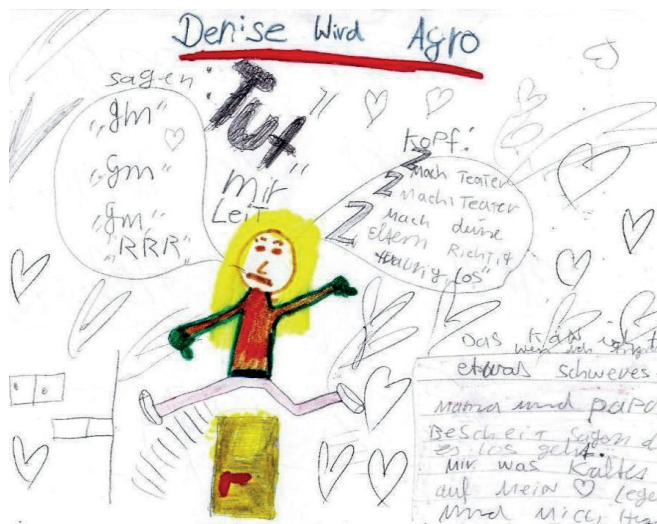 Denise Wird Agro
sagen:
"gm"
"gm"
gm,
"RRR"
"Tut
mir
Leit"
Kopf:
Mach Teater
Mach Teater
Mach deine
Eltern Richtig
los"
Das
etwas schweres
Mama und papa
Bescheit sagen d
es los geht.
Mir was Kaltes
auf Mein ♡ lege
Und Mich